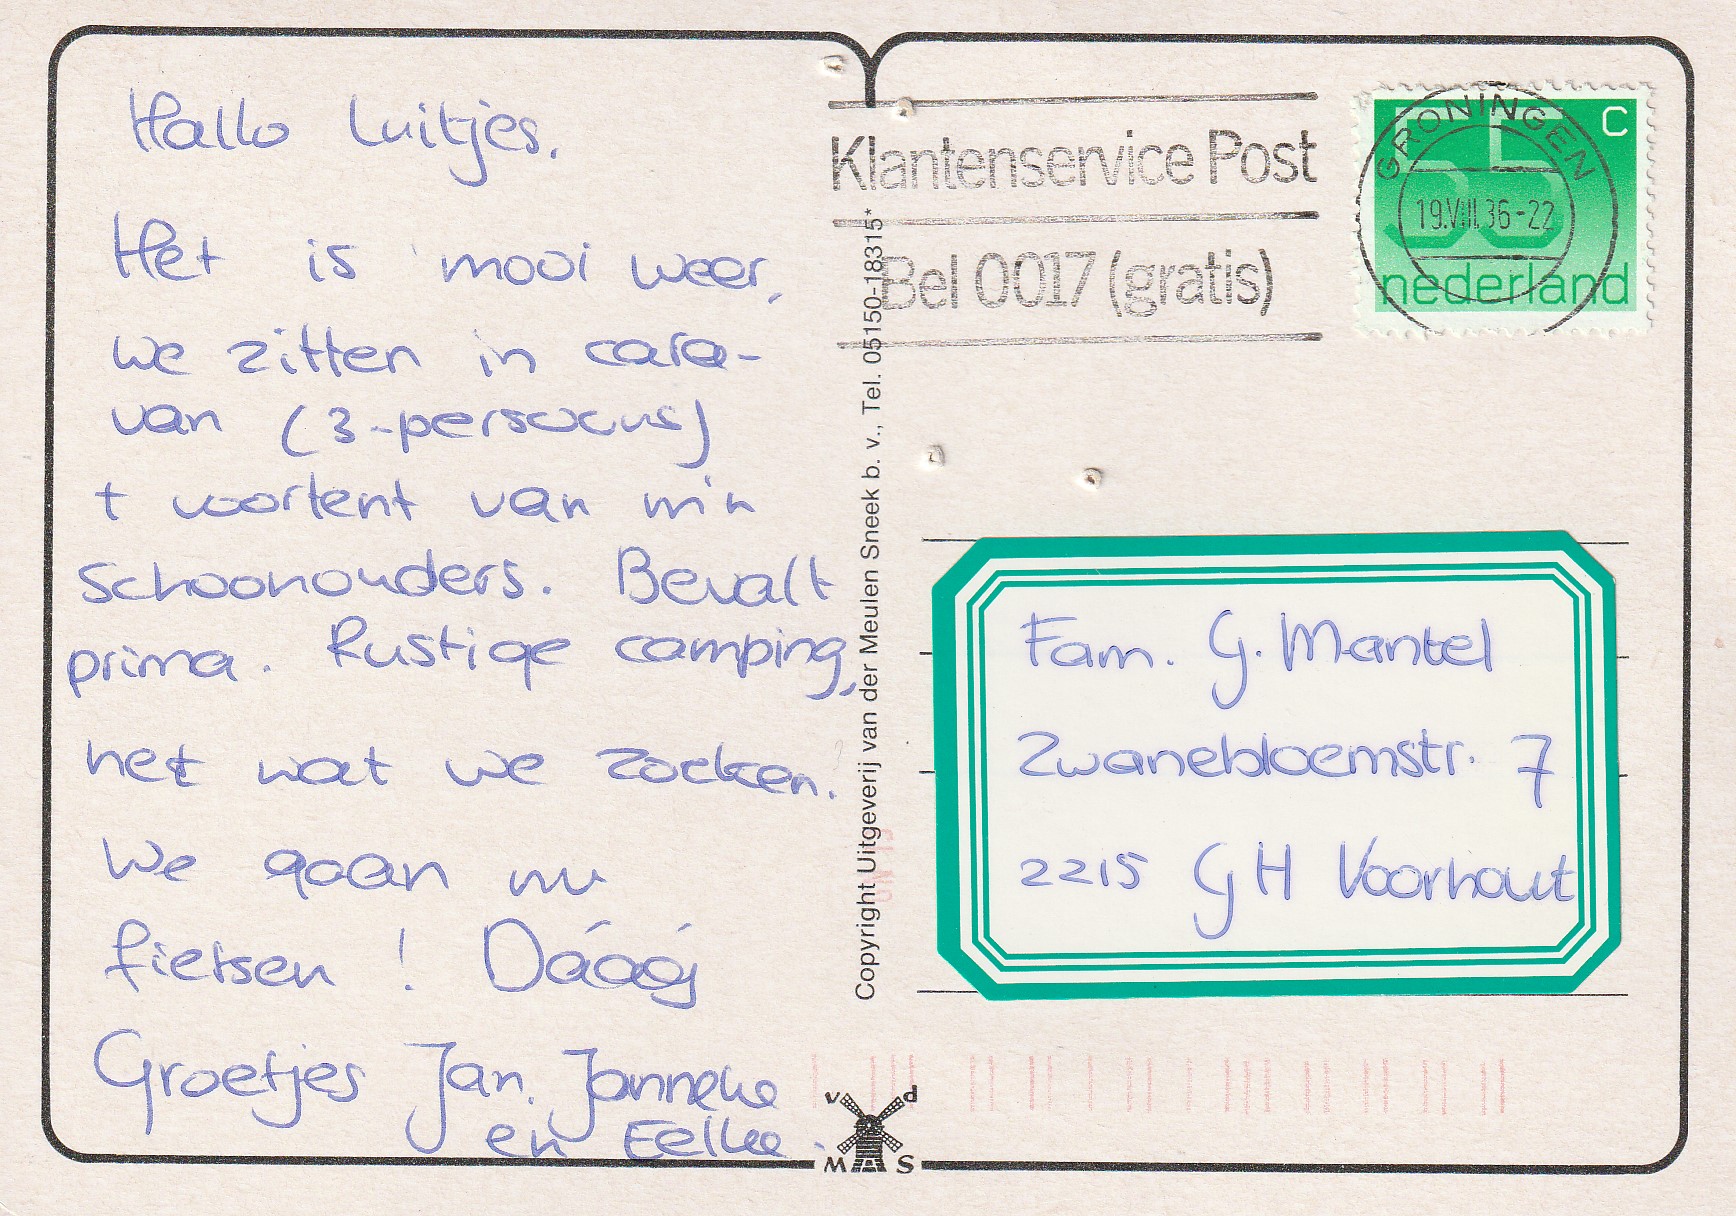 Hallo Luitjes,
Het is mooi weer,
we zitten in cara-
van (3-persoons)
+ voortent van m'n
schoonouders. Bevalt
prima. Rustige camping,
net wat we zoeken.
We gaan nu
fietsen! Dáááj
Groetjes Jan, Janneke
en Eelke.
Copyright Uitgeverij van der Meulen Sneek b. v., Tel. 05150-18315*
Klantenservice Post
Bel 0017 (gratis)
GRONINGEN
19.VIII.36-22
55 C
nederland
Fam. G. Mantel
Zwanebloemstr. 7
2215 GH Voorhout
v d
M S